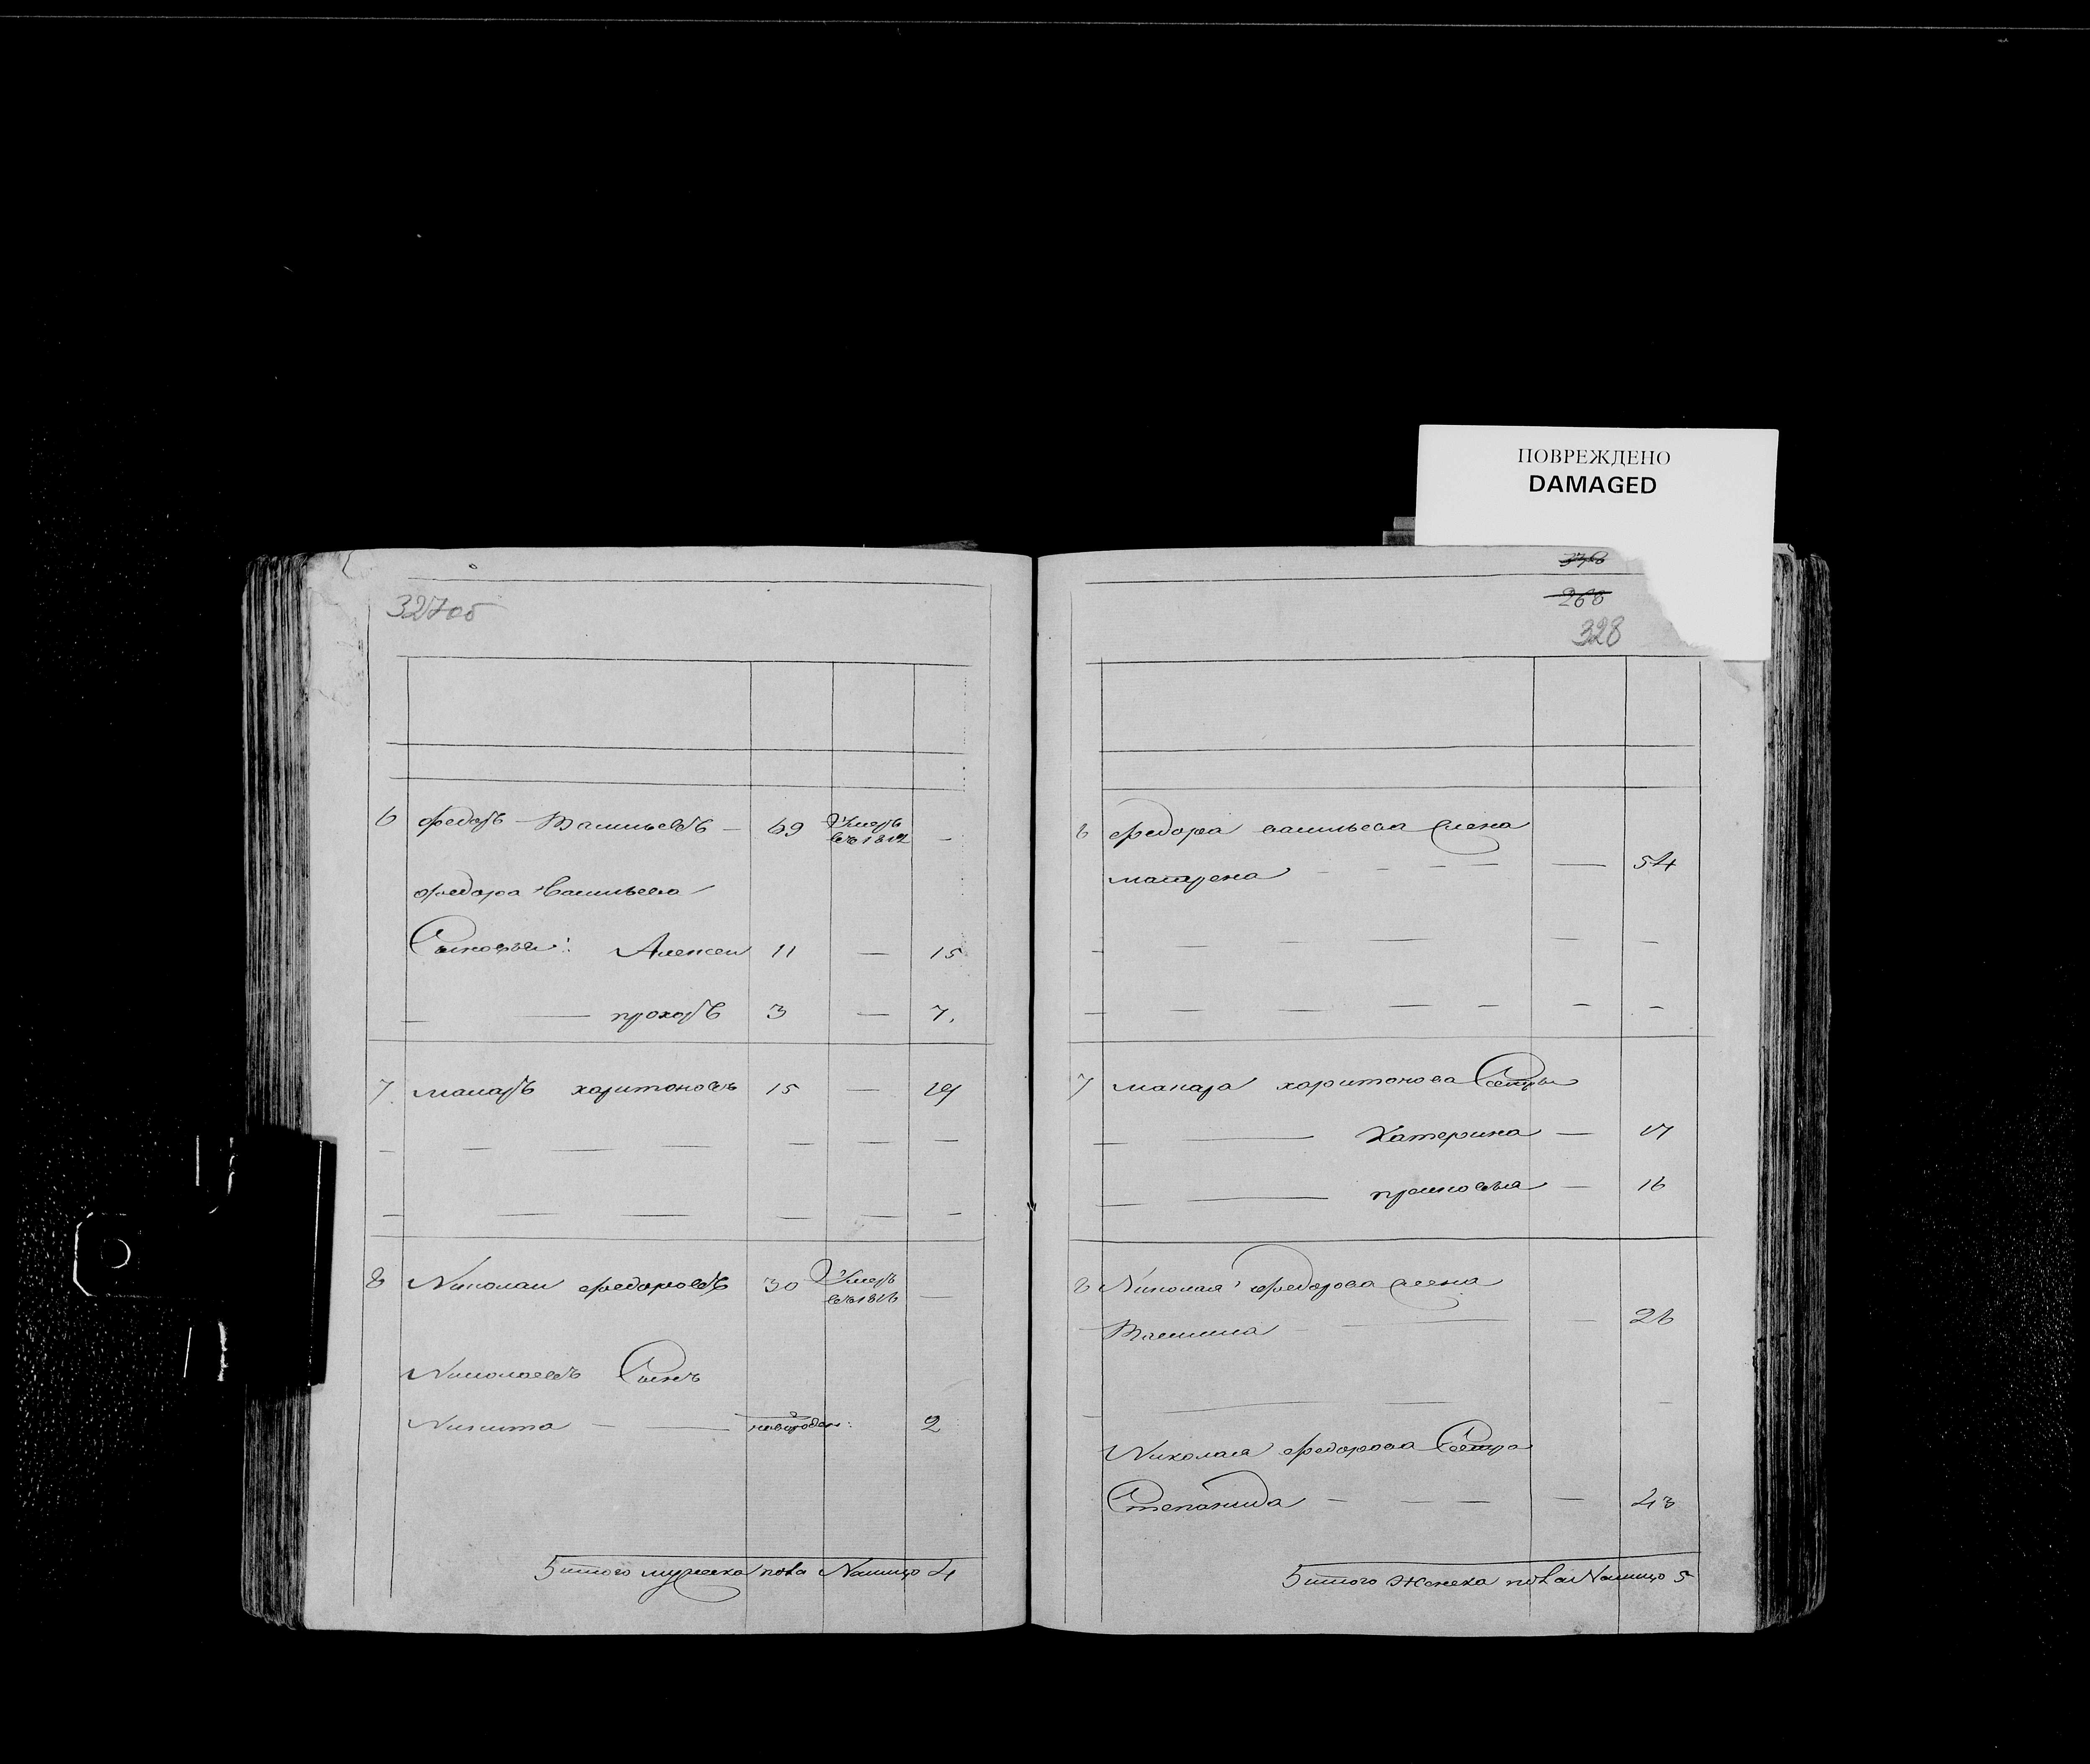 ПОВРЕЖДЕНО
DAMAGED
327об
6 федоръ Васильевъ — 69 Умеръ въ 1812 —
федора Васильева
Сыновья: Алексеи 11 — 15
— — прохоръ 3 — 7.
7. макаръ харитоновъ 15 — 19
8 Николаи федоровъ 30 Умеръ въ 1816 —
Николаевъ Сынъ
Никита — — новорожден: 2
Итого мужеска пола Налицо 4
268
328
6 федора васильева жена
матрена — — — — 54
7 макара харитонова Сестры
— — Катерина — 17
— — прасковья — 16
8 Николая федорова жена
Василиса — — — — 26
Николая федорова Сестра
Степанида — — — — 23
Итого женска пола Налицо 5